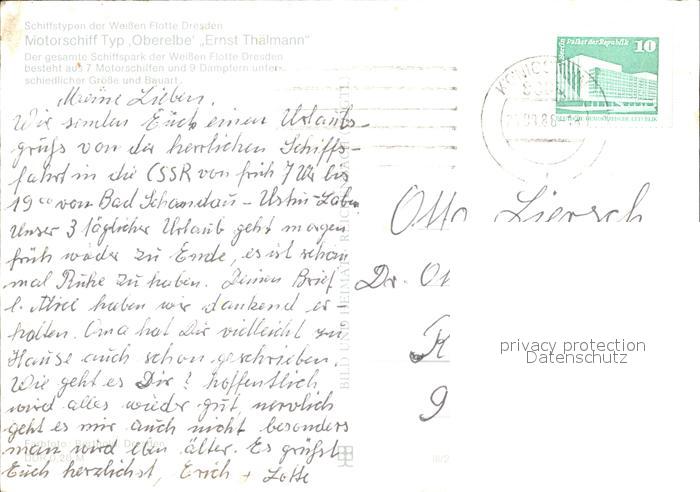 Schiffstypen der Weißen Flotte Dresden
Motorschiff Typ ‚Oberelbe' „Ernst Thälmann"
Der gesamte Schiffspark der Weißen Flotte Dresden
besteht aus 7 Motorschiffen und 9 Dampfern unter-
schiedlicher Größe und Bauart.
Meine Lieben,
Wir senden Euch einen Urlaubs-
gruß von der herrlichen Schiffs-
fahrt in die CSSR von früh 7 Uhr bis
19 00 von Bad Schandau – Ustni-Laben
Unser 3 täglicher Urlaub geht morgen
früh wieder zu Ende, es ist schön
mal Ruhe zu haben. Deinen Brief
l. haben wir dankend er-
halten. Oma hat Dir vielleicht zu
Hause auch schon geschrieben.
Wie geht es Dir? hoffentlich
wird alles wieder gut, nervlich
geht es mir auch nicht besonders
man wird eben älter. Es grüßt
Euch herzlichst, Erich + Lotte
Farbfoto: Dresden
BILD UND HEIMAT REICHENBACH (VOGTL)
Palast der Republik
10
DEUTSCHE DEMOKRATISCHE REPUBLIK
Otto Liersch
Dr. Ot
R
9
privacy protection
Datenschutz